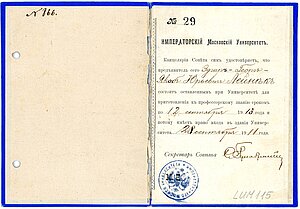 № 166.
№ 29
ИМПЕРАТОРСКІЙ Московскій Университетъ.
Канцелярія Совѣта симъ удостовѣряетъ, что
предъявитель сего Эрнстъ-Георгъ-
Яковъ Юрьевичъ
состоитъ оставленнымъ при Университетѣ для
приготовленія къ профессорскому званію срокомъ
по 12 сентября 1913 года и
потому имѣетъ право входа въ зданія Универси-
тета. 28 сентября 1911 года.
Секретарь Совѣта
LUM 115